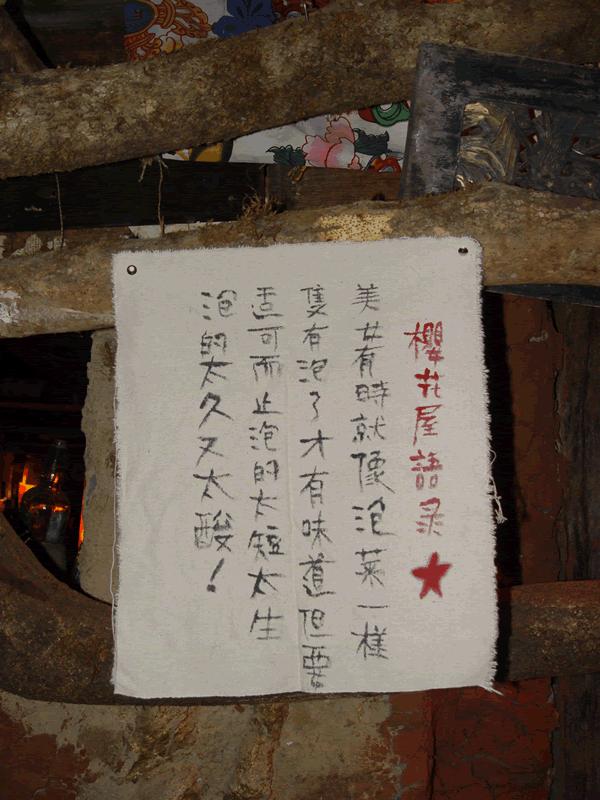 櫻花屋語录★
美女有時就像泡菜一樣
隻有泡了才有味道但要
适可而止泡的太短太生
泡的太久又太酸！